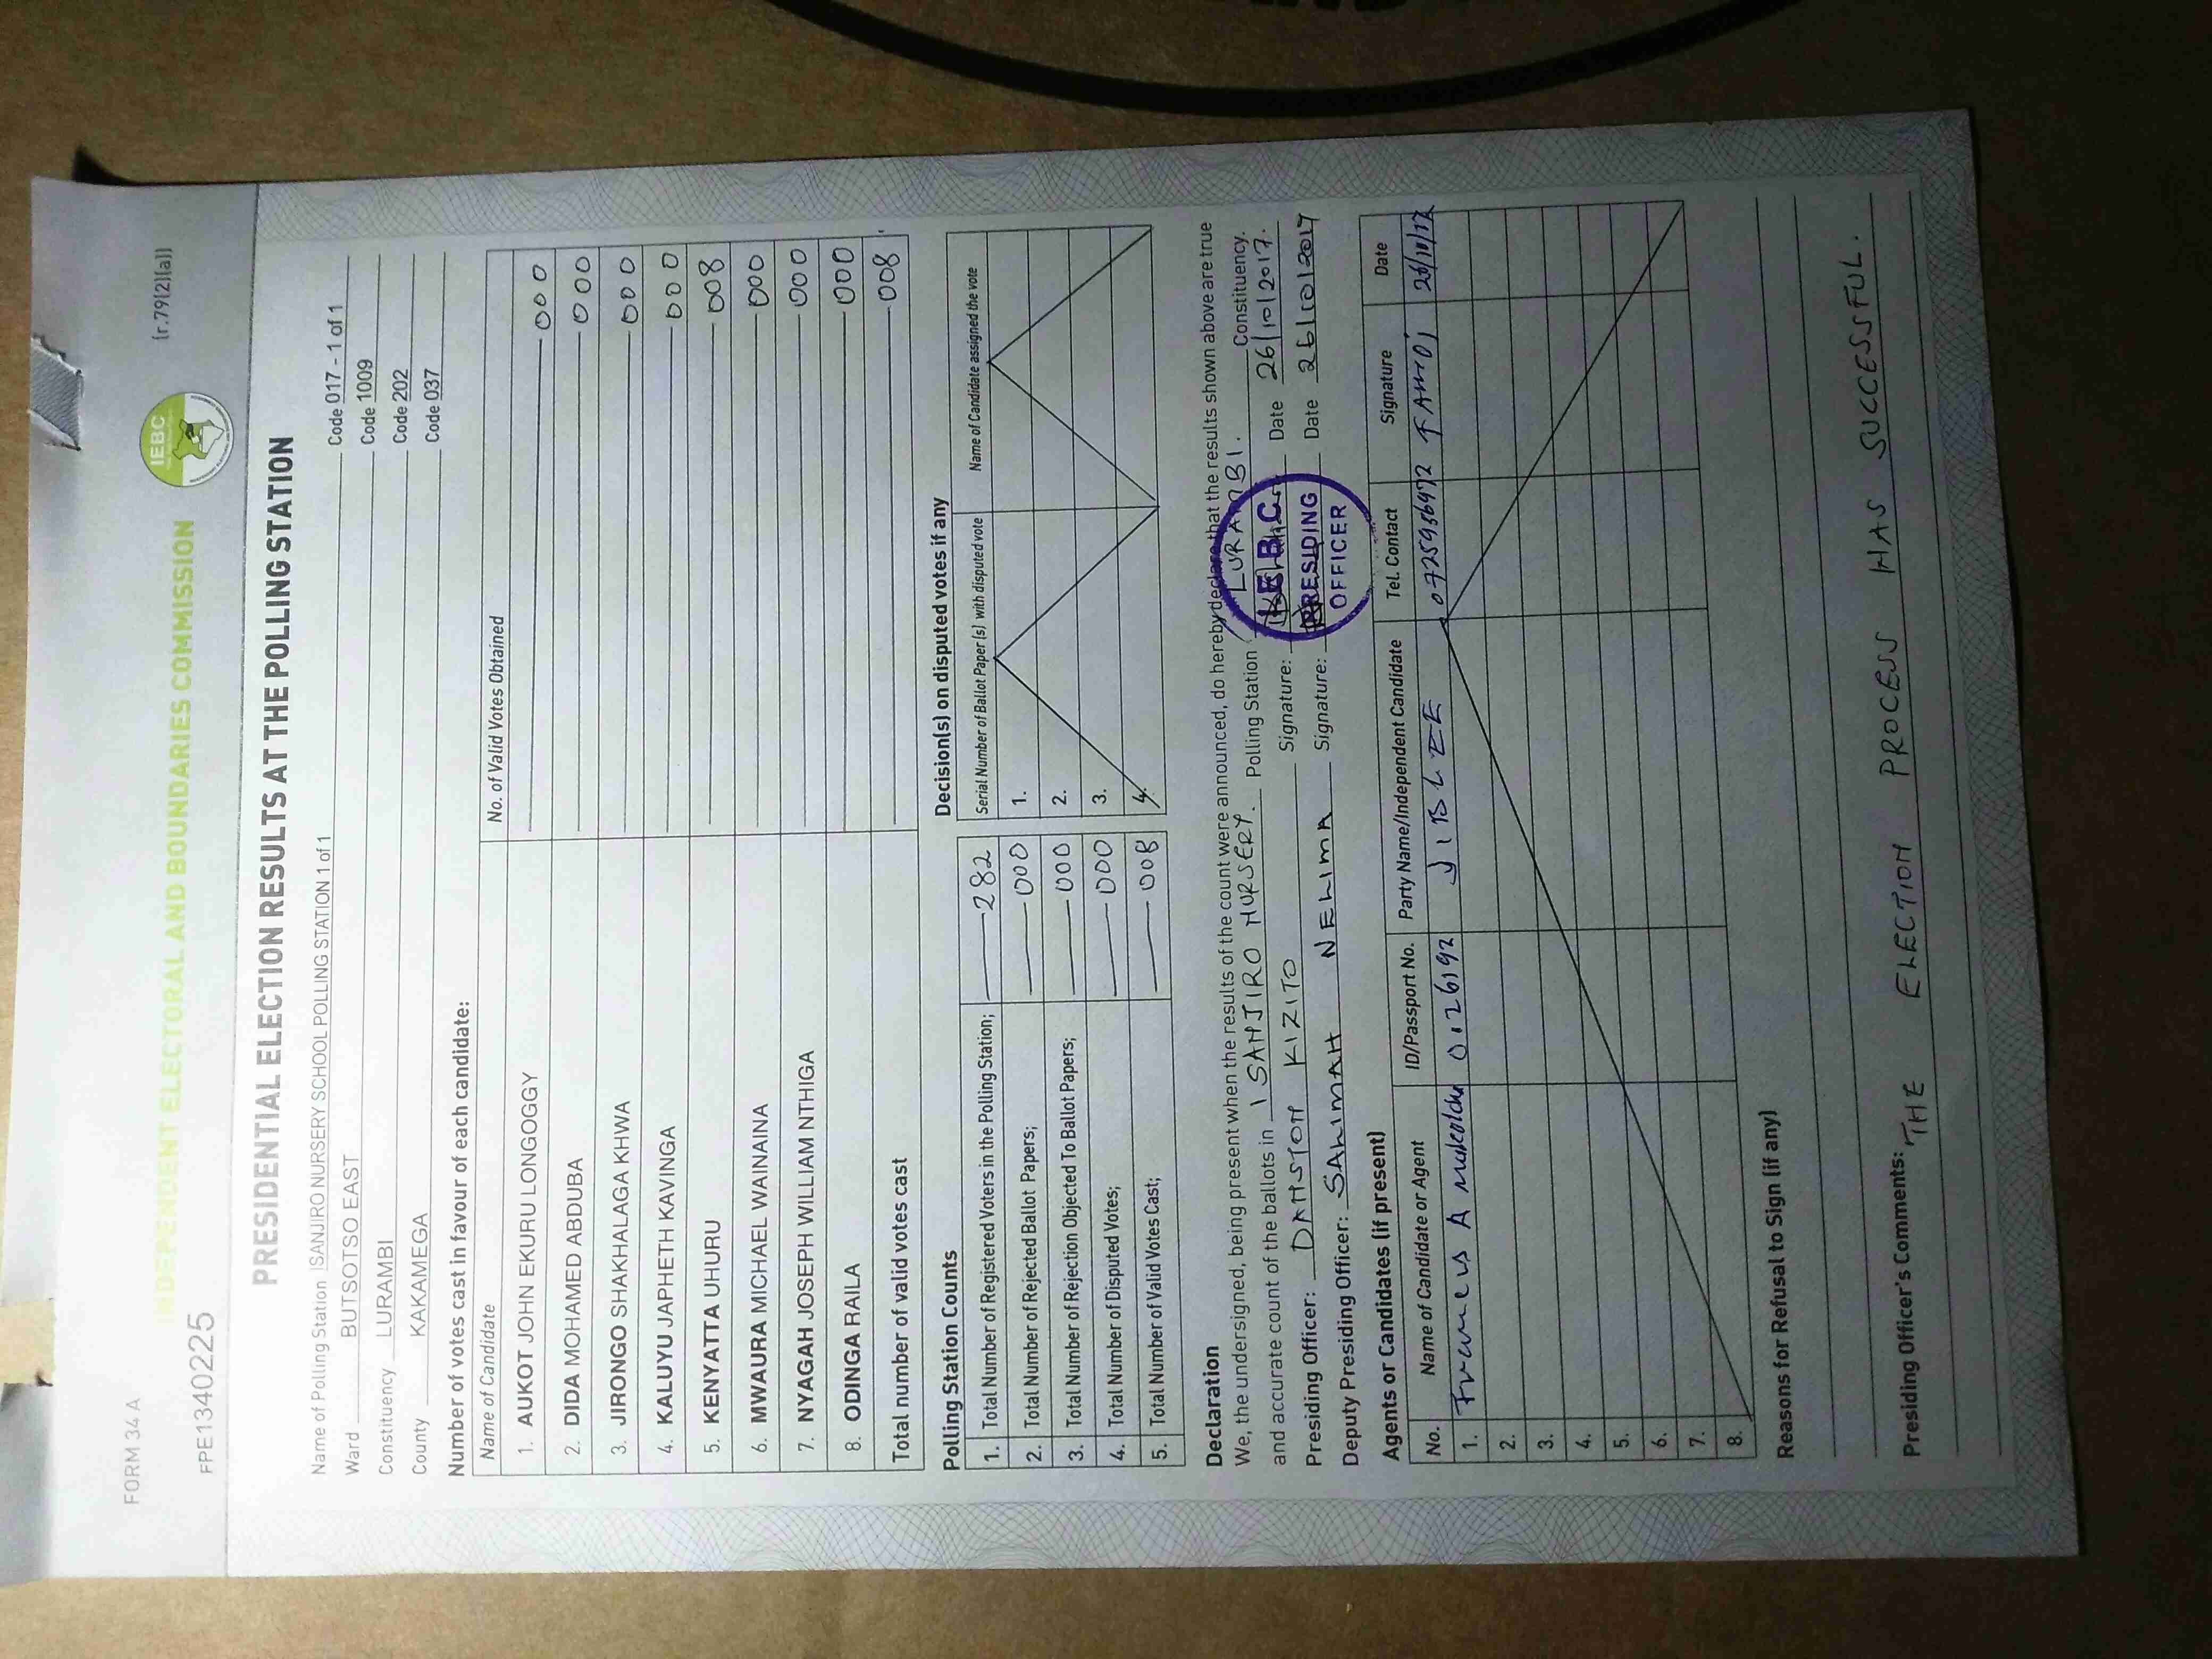 FORM 34 A
(r.79(2)(a))
INDEPENDENT ELECTORAL AND BOUNDARIES COMMISSION
IEBC
FPE1340225
PRESIDENTIAL ELECTION RESULTS AT THE POLLING STATION
Name of Polling Station ISANJIRO NURSERY SCHOOL POLLING STATION 1 of 1 Code 017 - 1 of 1
Ward BUTSOTSO EAST Code 1009
Constituency LURAMBI Code 202
County KAKAMEGA Code 037
Number of votes cast in favour of each candidate:
Name of Candidate No. of Valid Votes Obtained
1. AUKOT JOHN EKURU LONGOGGY 000
2. DIDA MOHAMED ABDUBA 000
3. JIRONGO SHAKHALAGA KHWA 000
4. KALUYU JAPHETH KAVINGA 000
5. KENYATTA UHURU 008
6. MWAURA MICHAEL WAINAINA 000
7. NYAGAH JOSEPH WILLIAM NTHIGA 000
8. ODINGA RAILA 000
Total number of valid votes cast 008
Polling Station Counts
1. Total Number of Registered Voters in the Polling Station; 282
2. Total Number of Rejected Ballot Papers; 000
3. Total Number of Rejection Objected To Ballot Papers; 000
4. Total Number of Disputed Votes; 000
5. Total Number of Valid Votes Cast; 008
Decision(s) on disputed votes if any
Serial Number of Ballot Paper (s) with disputed vote Name of Candidate assigned the vote
1.
2.
3.
4.
Declaration
We, the undersigned, being present when the results of the count were announced, do hereby declare that the results shown above are true
and accurate count of the ballots in ISANJIRO NURSERY. Polling Station LURAMBI. Constituency.
Presiding Officer: DANSTON KIZITO Signature: Date 26/10/2017.
Deputy Presiding Officer: SALIMAH NELIMA Signature: Date 26/10/2017
I.E.B.C.
PRESIDING
OFFICER
Agents or Candidates (if present)
No. Name of Candidate or Agent ID/Passport No. Party Name/Independent Candidate Tel. Contact Signature Date
1. A 0126192 JIBLEE 0725956972 26/10/17
2.
3.
4.
5.
6.
7.
8.
Reasons for Refusal to Sign (if any)
Presiding Officer's Comments: THE ELECTION PROCESS HAS SUCCESSFUL.